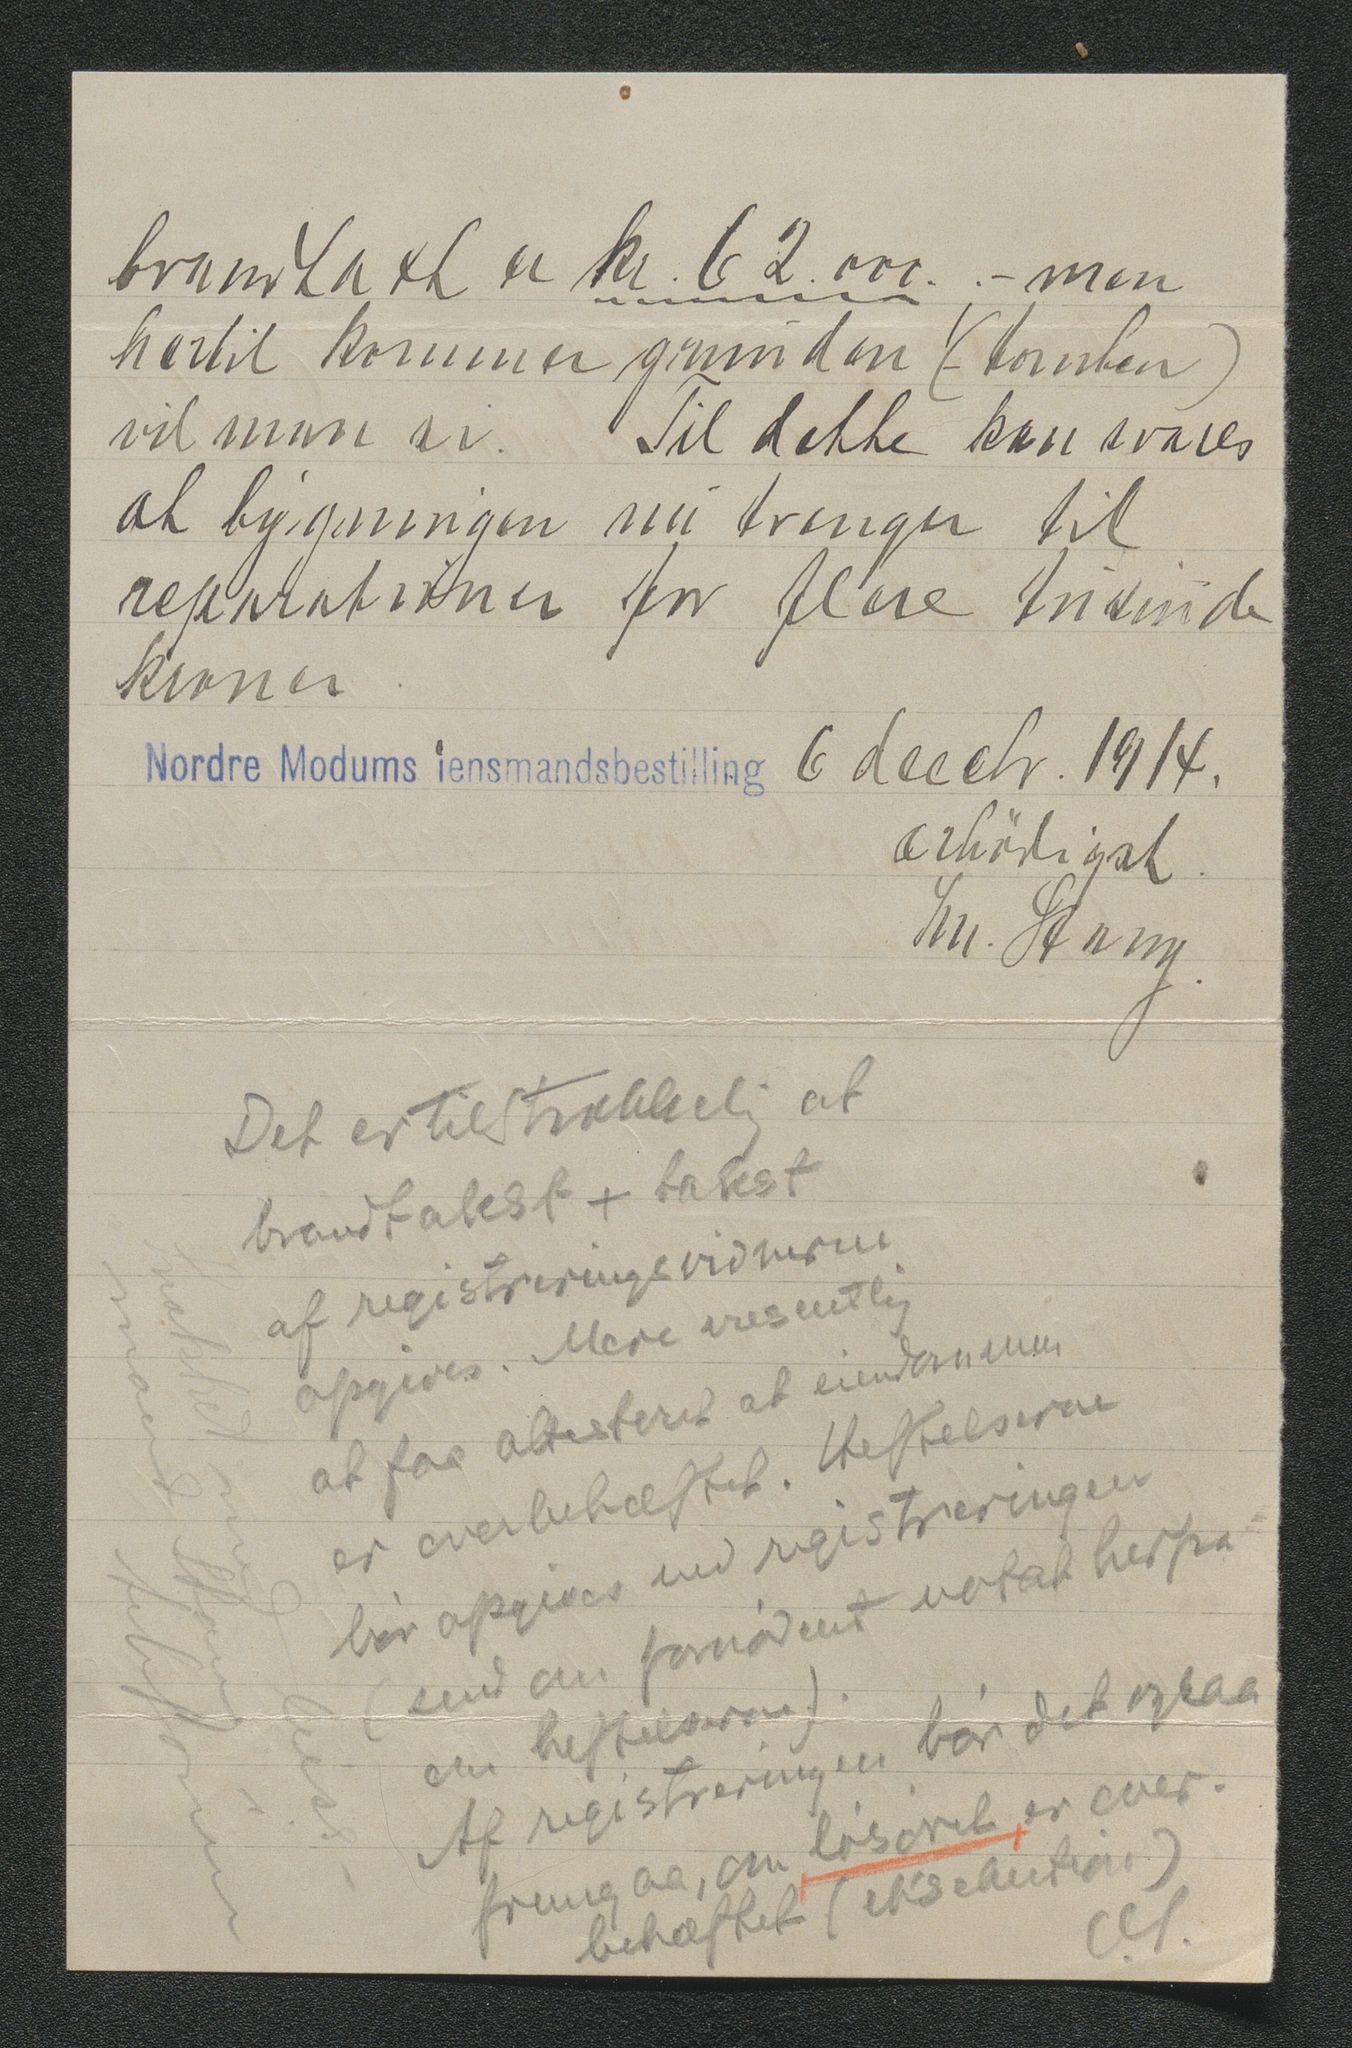 brandtaxt er kr. 62.000. - men
hertil kommer grunden (- tomten)
vil man si. Til dette kan svares
at bygningen nu trenger til
reparationer for flere tusinde
kroner.
Nordre Modums lensmandsbestilling 6 decbr. 1914.
ærbödigst
Chr. Stang.
Det er tilstrækkelig at
brandtakst + takst
af registreringsvidnerne
opgives. Mere væsentlig
at faa attesteret at eiendommen
er overbehæftet. Heftelserne
bör opgives ved registreringen
(send om fornödent notat herfra
om heftelserne).
Af registreringen bör det ogsaa
fremgaa, om lösöret er over-
behæftet (eksekution)
mand Stang